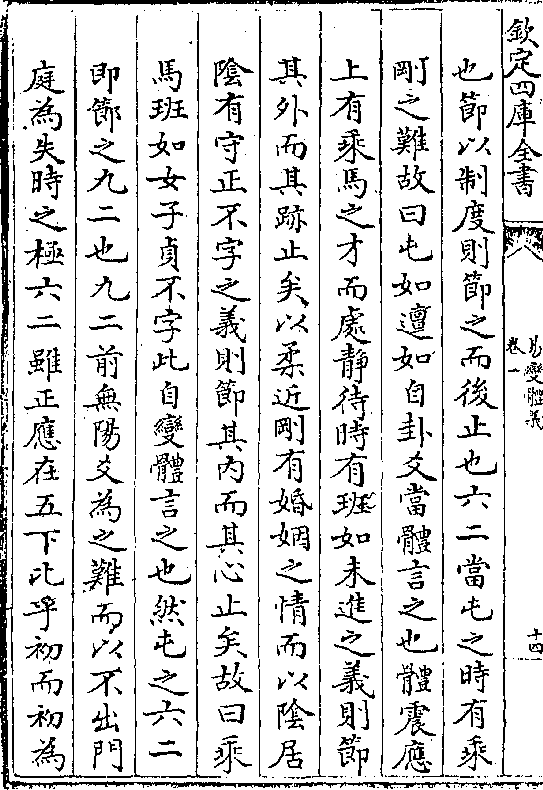 欽定四庫全書
易變體義
卷一
十四
也節以制度則節之而後止也六二當屯之時有乘
剛之難故曰屯如邅如自卦爻當體言之也體震應
上有乘馬之才而處静待時有班如未進之義則節
其外而其跡止矣以柔近剛有婚姻之情而以陰居
陰有守正不字之義則節其内而其心止矣故曰乘
馬班如女子貞不字此自變體言之也然屯之六二
即節之九二也九二前無陽爻為之難而以不出門
庭為失時之極六二雖正應在五下比乎初而初為